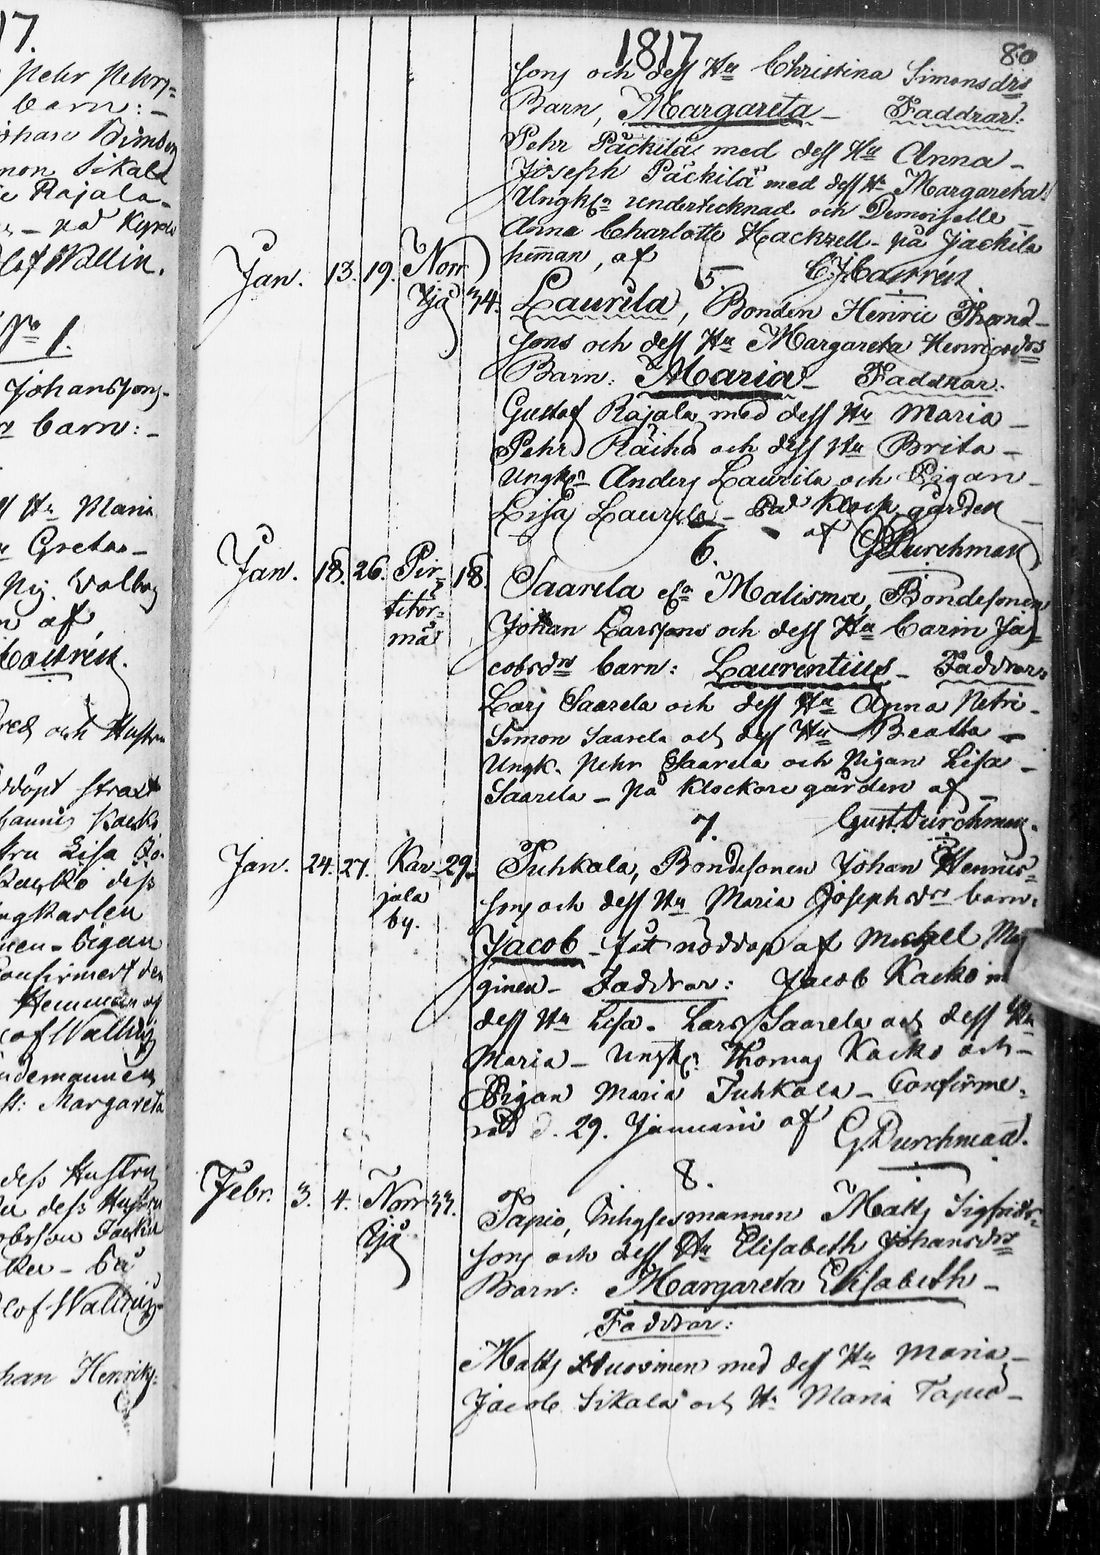 17.
Pehr Pehrs=
barn: _
Johan Simons
Simon Sikala
Rajala_
_ på Kyrko
Olof Wallin.
No 1.
Johanssons.
barn: _
Hu Maria
Greta_
Pig. Walborg
af
Castrén.
och Hustru
döpt strax
Kaski
Lisa
Kasko dess
ungkarlen
Pigan
Confirmert den
Hemman af
Olof Wallin
Lindemannen
Margareta
dess Hustru
dess Hustru
Olof Wallin
Johan Henriks:
1817
80
sons och dess Hu Christina Simonsdrs
Barn, Margareta _ Faddrar:
Pehr Päckilä med dess Hu Anna _
Joseph Päckilä med dess Hu Margareta
Ungkn undertecknad och Demoiselle _
Anna Charlotte Hackzell _ på Jackila
heman, af C. J. Castrén
5.
Jan. 13. 19. Norr 34. Laurila, Bonden Henric Thomæ_
Yjå sons och dess Hu Margareta Henricsdrs
Barn: Maria _ Faddrar:
Gustaf Rajala med dess Hu Maria _
Pehr Räihä och dess Hu Brita _
Ungkn Anders Laurila och Pigan _
Lisa Laurila _ På Klockgården
af G. Durchman
6.
Jan. 18. 26. Pir= 18. Saarela en Malisma, Bondesonen
titör= Johan Larssons och dess Hu Carin Ja=
mä cobsdrs barn: Laurentius _ Faddrar:
Lars Saarela och dess Hu Anna Petri _
Simon Saarela och dess Hu Beatta _
Ungk. Pehr Saarela och Pigan Lisa _
Saarela _ på Klockaregården af _
Gust. Durchman.
7.
Jan. 24. 27. Kar= 29. Tuhkala, Bondesonen Johan Henrics=
jala sons och dess Hu Maria Josephsdrs barn:
by. Jacob _ fåt nöddop af Michell
ginen _ Faddrar: Jacob Kacko
dess Hu Lisa. Lars Saarela och dess Hu
Maria _ Ungk: Thomas Kacko och _
Pigan Maria Tuhkala _ Confirme=
rad d. 29. Januarii af G. Durchman.
8.
Febr. 3. 4. Norr 33. Tapio, Inhysesmannen Matts Sigfrids=
Yjå sons och dess Hu Elisabeth Johansdrs
Barn: Margareta Elisabeth _
Faddrar:
Matts Huovinen med dess Hu Maria _
Jacob Sikala och Hu Maria Tapio _